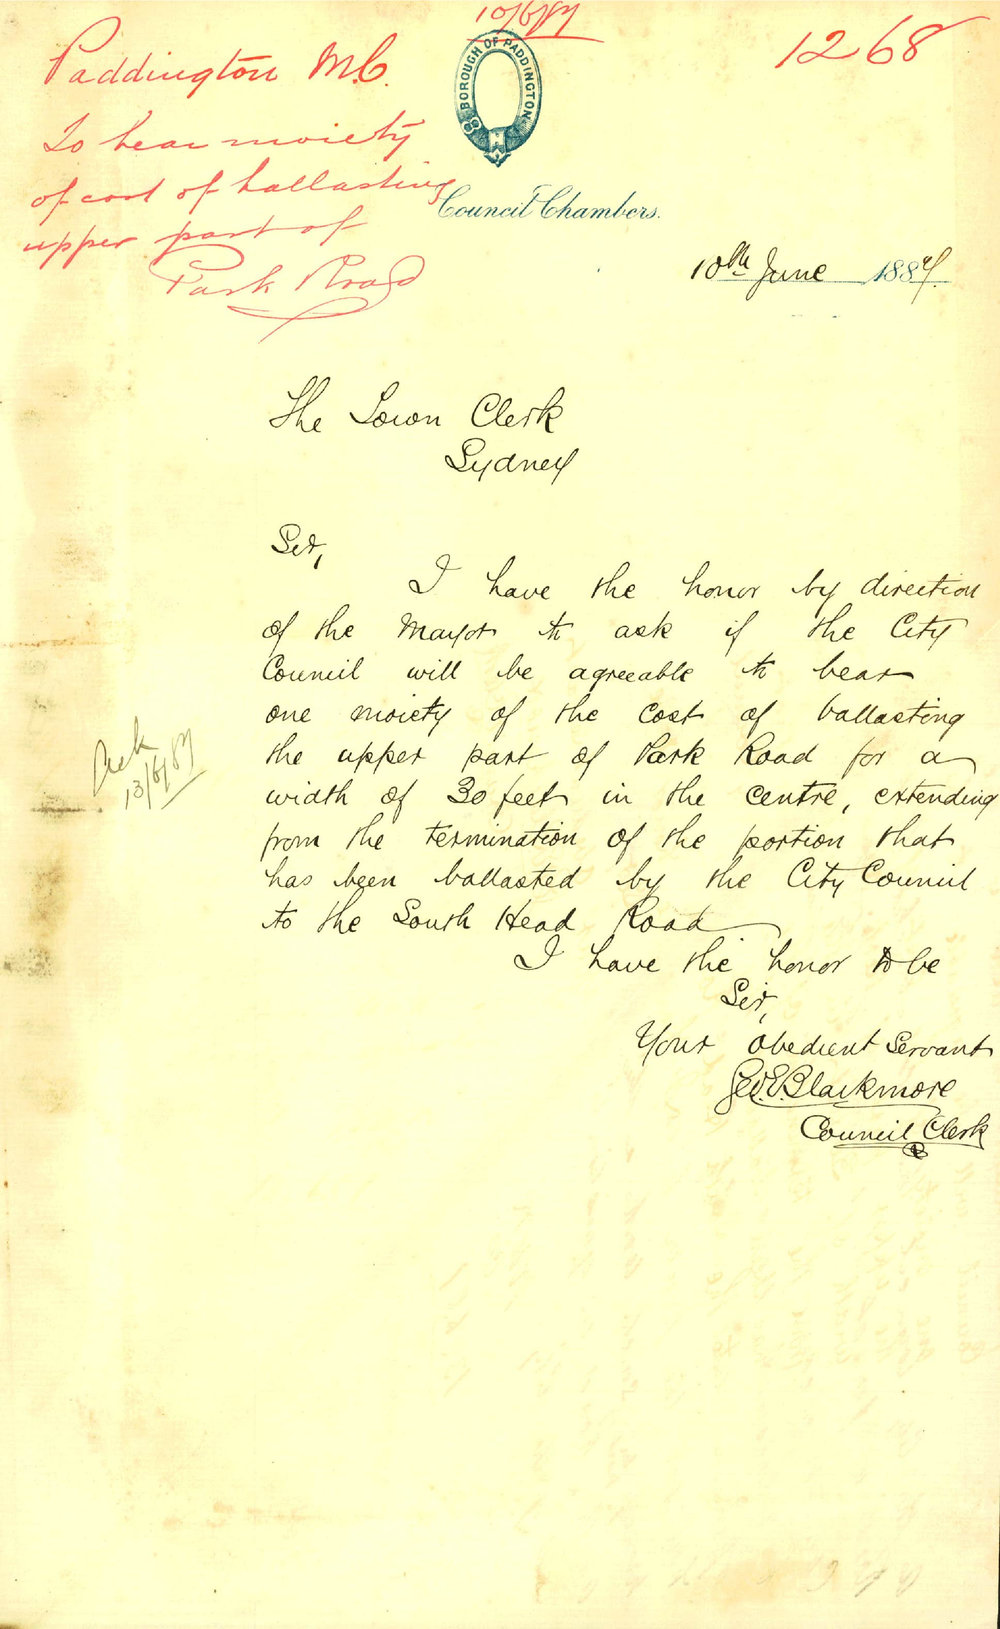 10/6/87
1268
Paddington M.C.
To bear moiety
of cost of ballasting
upper part of
Park Road
BOROUGH OF PADDINGTON
Council Chambers.
10th June 1887.
The Town Clerk
Sydney
Sir,
I have the honor by direction
of the Mayor to ask if the City
Council will be agreeable to bear
one moiety of the cost of ballasting
the upper part of Park Road for a
width of 30 feet in the centre, extending
from the termination of the portion that
has been ballasted by the City Council
to the South Head Road
I have the honor to be
Sir,
Your obedient Servant
Geo. E. Blackmore
Council Clerk
13/6/87